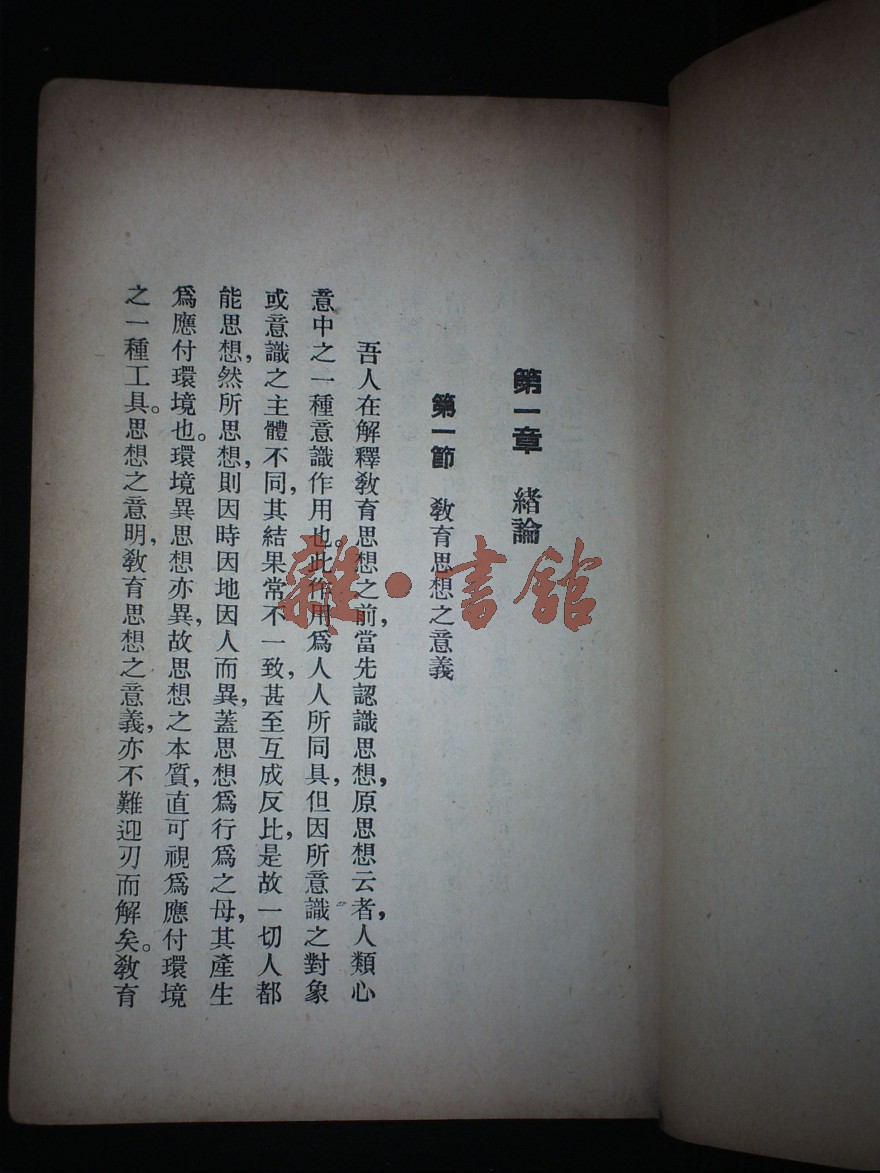 第一章 緒論
第一節 敎育思想之意義
吾人在解釋敎育思想之前，當先認識思想，原思想云者，人類心
意中之一種意識作用也。此作用爲人人所同具，但因所意識之對象
或意識之主體不同，其結果常不一致，甚至互成反比，是故一切人都
能思想，然所思想，則因時因地因人而異，蓋思想爲行爲之母，其產生
爲應付環境也。環境異思想亦異，故思想之本質，直可視爲應付環境
之一種工具。思想之意明，敎育思想之意義，亦不難迎刃而解矣。敎育
雜·書館